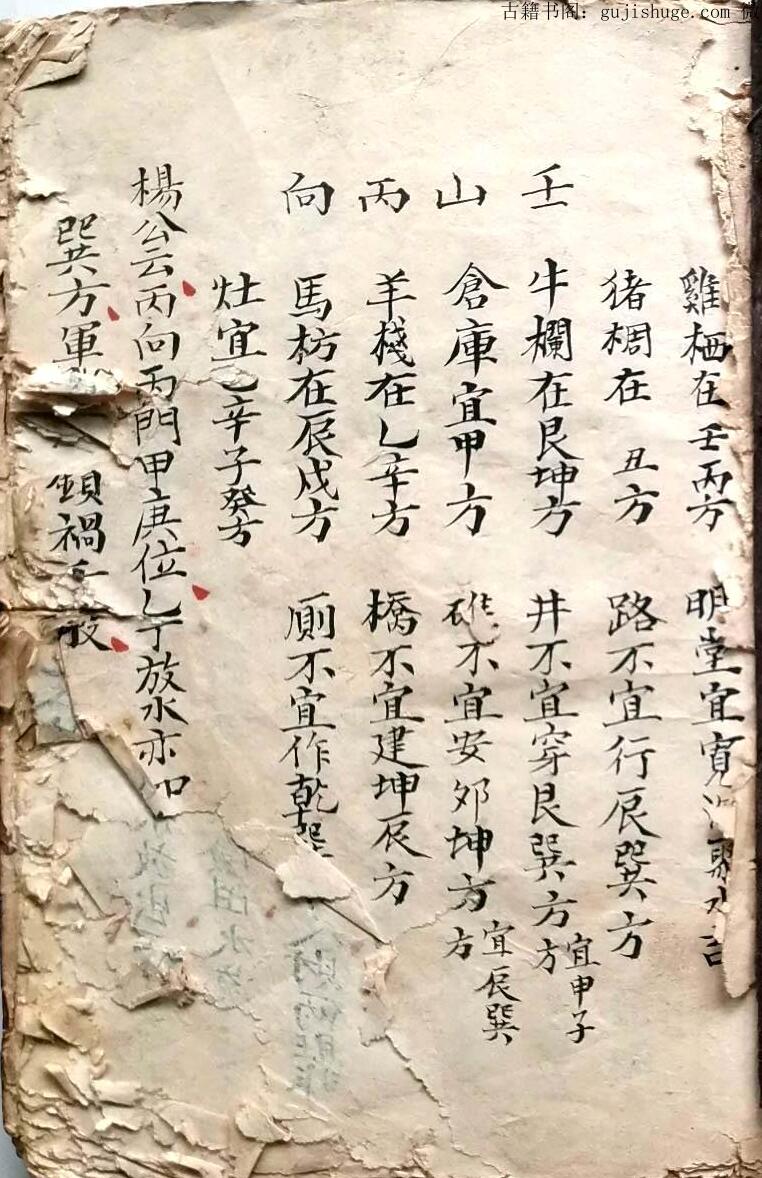 古籍书阁：gujishuge.com 微
雞栖在壬丙方 明堂宜寬 聚水
猪椆在 丑方 路不宜行辰巽方
壬 牛欄在艮坤方 井不宜穿艮巽方 宜申子方
山 倉庫宜甲方 碓不宜安卯坤方 宜辰巽方
丙 羊棧在乙辛方 橋不宜建坤辰方
向 馬枋在辰戌方 厠不宜作乾巽
灶宜乙辛子癸方
楊公云丙向丙門甲庚位乙丁放水亦如
巽方軍 禍